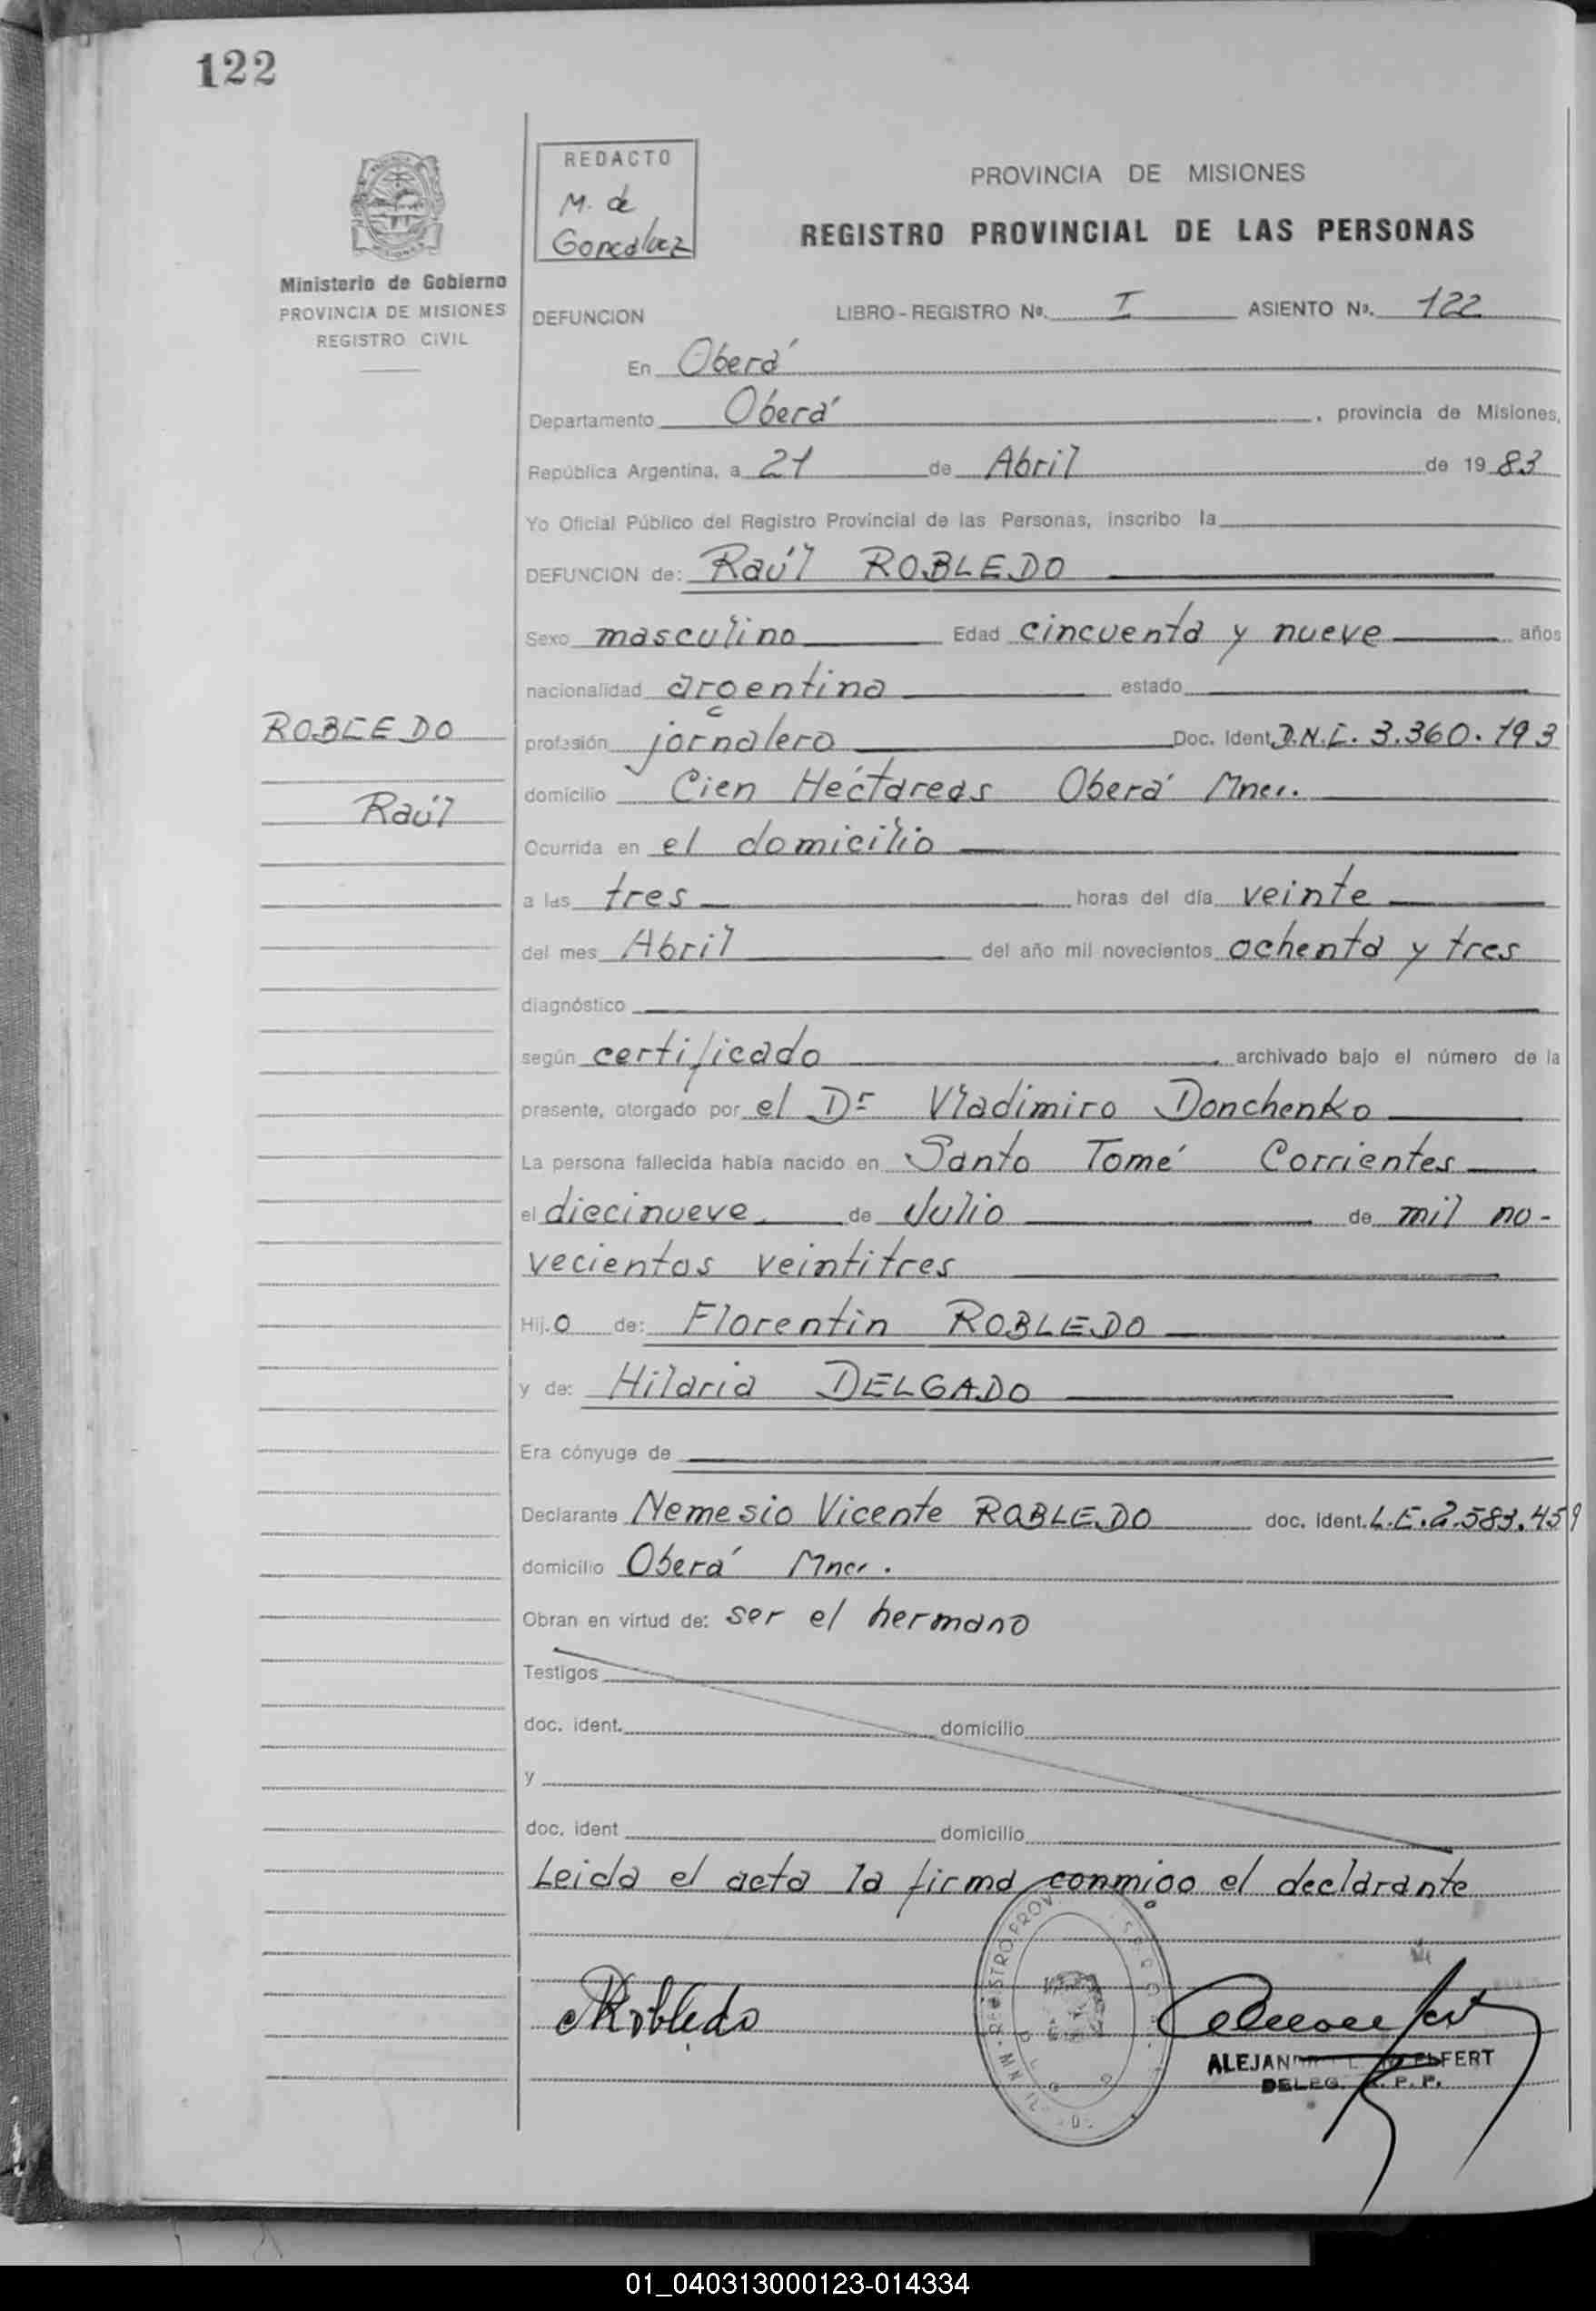 122
REDACTO
M. de
Goncalvez
PROVINCIA DE MISIONES
REGISTRO PROVINCIAL DE LAS PERSONAS
Ministerio de Gobierno
PROVINCIA DE MISIONES
REGISTRO CIVIL
DEFUNCION LIBRO-REGISTRO Nº. I ASIENTO Nº. 122
En Oberá
Departamento Oberá, provincia de Misiones,
República Argentina, a 21 de Abril de 1983
Yo Oficial Público del Registro Provincial de las Personas, inscribo la
DEFUNCION de: Raúl ROBLEDO
Sexo masculino Edad cincuenta y nueve años
nacionalidad argentina estado
ROBLEDO
profesión jornalero Doc. Ident. D.N.I. 3.360.193
domicilio Cien Héctareas Oberá Mnes.
Raúl
Ocurrida en el domicilio
a las tres horas del día veinte
del mes Abril del año mil novecientos ochenta y tres
diagnóstico
según certificado archivado bajo el número de la
presente, otorgado por el Dr Vladimiro Donchenko
La persona fallecida había nacido en Santo Tomé Corrientes
el diecinueve de Julio de mil no-
vecientos veintitres
Hij.o de: Florentin ROBLEDO
y de: Hilaria DELGADO
Era cónyuge de
Declarante Nemesio Vicente ROBLEDO doc. ident. L.E. 2.583.459
domicilio Oberá Mnes.
Obran en virtud de: ser el hermano
Testigos
doc. ident. domicilio
y
doc. ident domicilio
Leida el acta la firma conmigo el declarante
NRobledo
REGISTRO PROV
ALEJAN FERT
DELEG. R. P. P.
01_040313000123-014334